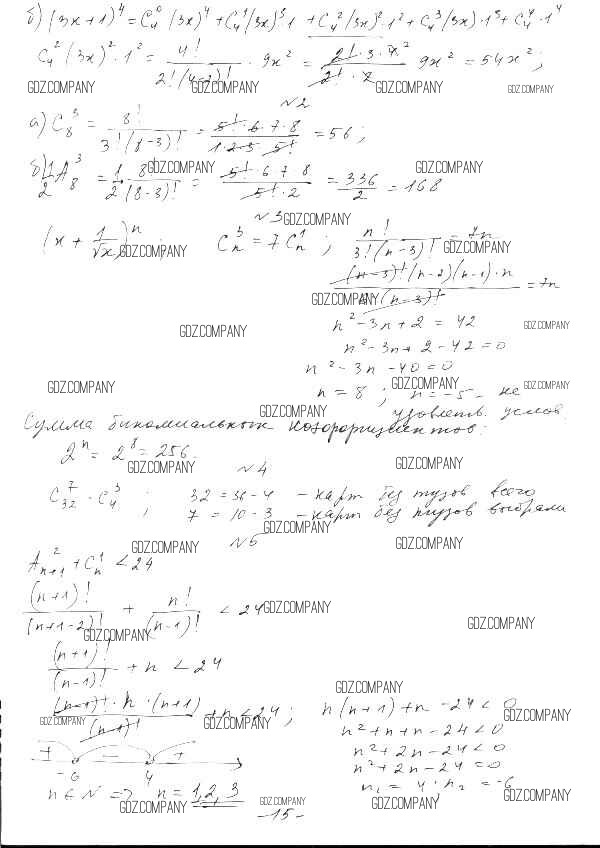 б) (3x+1)^4 = C_4^0 (3x)^4 + C_4^1 (3x)^3 1 + C_4^2 (3x)^2 · 1^2 + C_4^3 (3x) · 1^3 + C_4^4 · 1^4
C_4^2 (3x)^2 · 1^2 = 4! / 2!(4-2)! · 9x^2 = 2! · 3 · 4^2 / 2! · 2 9x^2 = 54x^2;
GDZ.COMPANY GDZ.COMPANY GDZ.COMPANY GDZ.COMPANY
№2
а) C_8^3 = 8! / 3!(8-3)! = 5! · 6 · 7 · 8 / 1·2·3 5! = 56;
GDZ.COMPANY GDZ.COMPANY
б) 1/2 A_8^3 = 1/2 · 8! / (8-3)! = 5! · 6 7 8 / 5! · 2 = 336/2 = 168
№3 GDZ.COMPANY
(x + 1/√x)^n; C_n^3 = 7C_n^1; n! / 3!(n-3)! = 7n
GDZ.COMPANY GDZ.COMPANY
(n-3)!(n-2)(n-1)·n / (n-3)! = 7n
GDZ.COMPANY
n^2 - 3n + 2 = 42
GDZ.COMPANY GDZ.COMPANY
n^2 - 3n + 2 - 42 = 0
n^2 - 3n - 40 = 0
GDZ.COMPANY GDZ.COMPANY GDZ.COMPANY
n = 8; n = -5 - не
GDZ.COMPANY удовлетв. услов.
Сумма биномиальных коэффициентов:
2^n = 2^8 = 256.
GDZ.COMPANY GDZ.COMPANY
№4
C_32^7 · C_4^3; 32 = 36 - 4 - карт без тузов всего
7 = 10 - 3 - карт без тузов выбрали
GDZ.COMPANY
№5 GDZ.COMPANY GDZ.COMPANY
A_{n+1}^2 + C_n^1 < 24
(n+1)! / (n+1-2)! + n! / (n-1)! < 24 GDZ.COMPANY
GDZ.COMPANY GDZ.COMPANY
(n+1)! / (n-1)! + n < 24
GDZ.COMPANY
(n-1)! · n · (n+1) / (n-1)! + n < 24; n(n+1) + n - 24 < 0
GDZ.COMPANY GDZ.COMPANY GDZ.COMPANY
n^2 + n + n - 24 < 0
n^2 + 2n - 24 < 0
+ - +
n^2 + 2n - 24 = 0
-6 4
n_1 = 4, n_2 = -6
n ∈ N => n = 1, 2, 3
GDZ.COMPANY GDZ.COMPANY GDZ.COMPANY GDZ.COMPANY
-15-